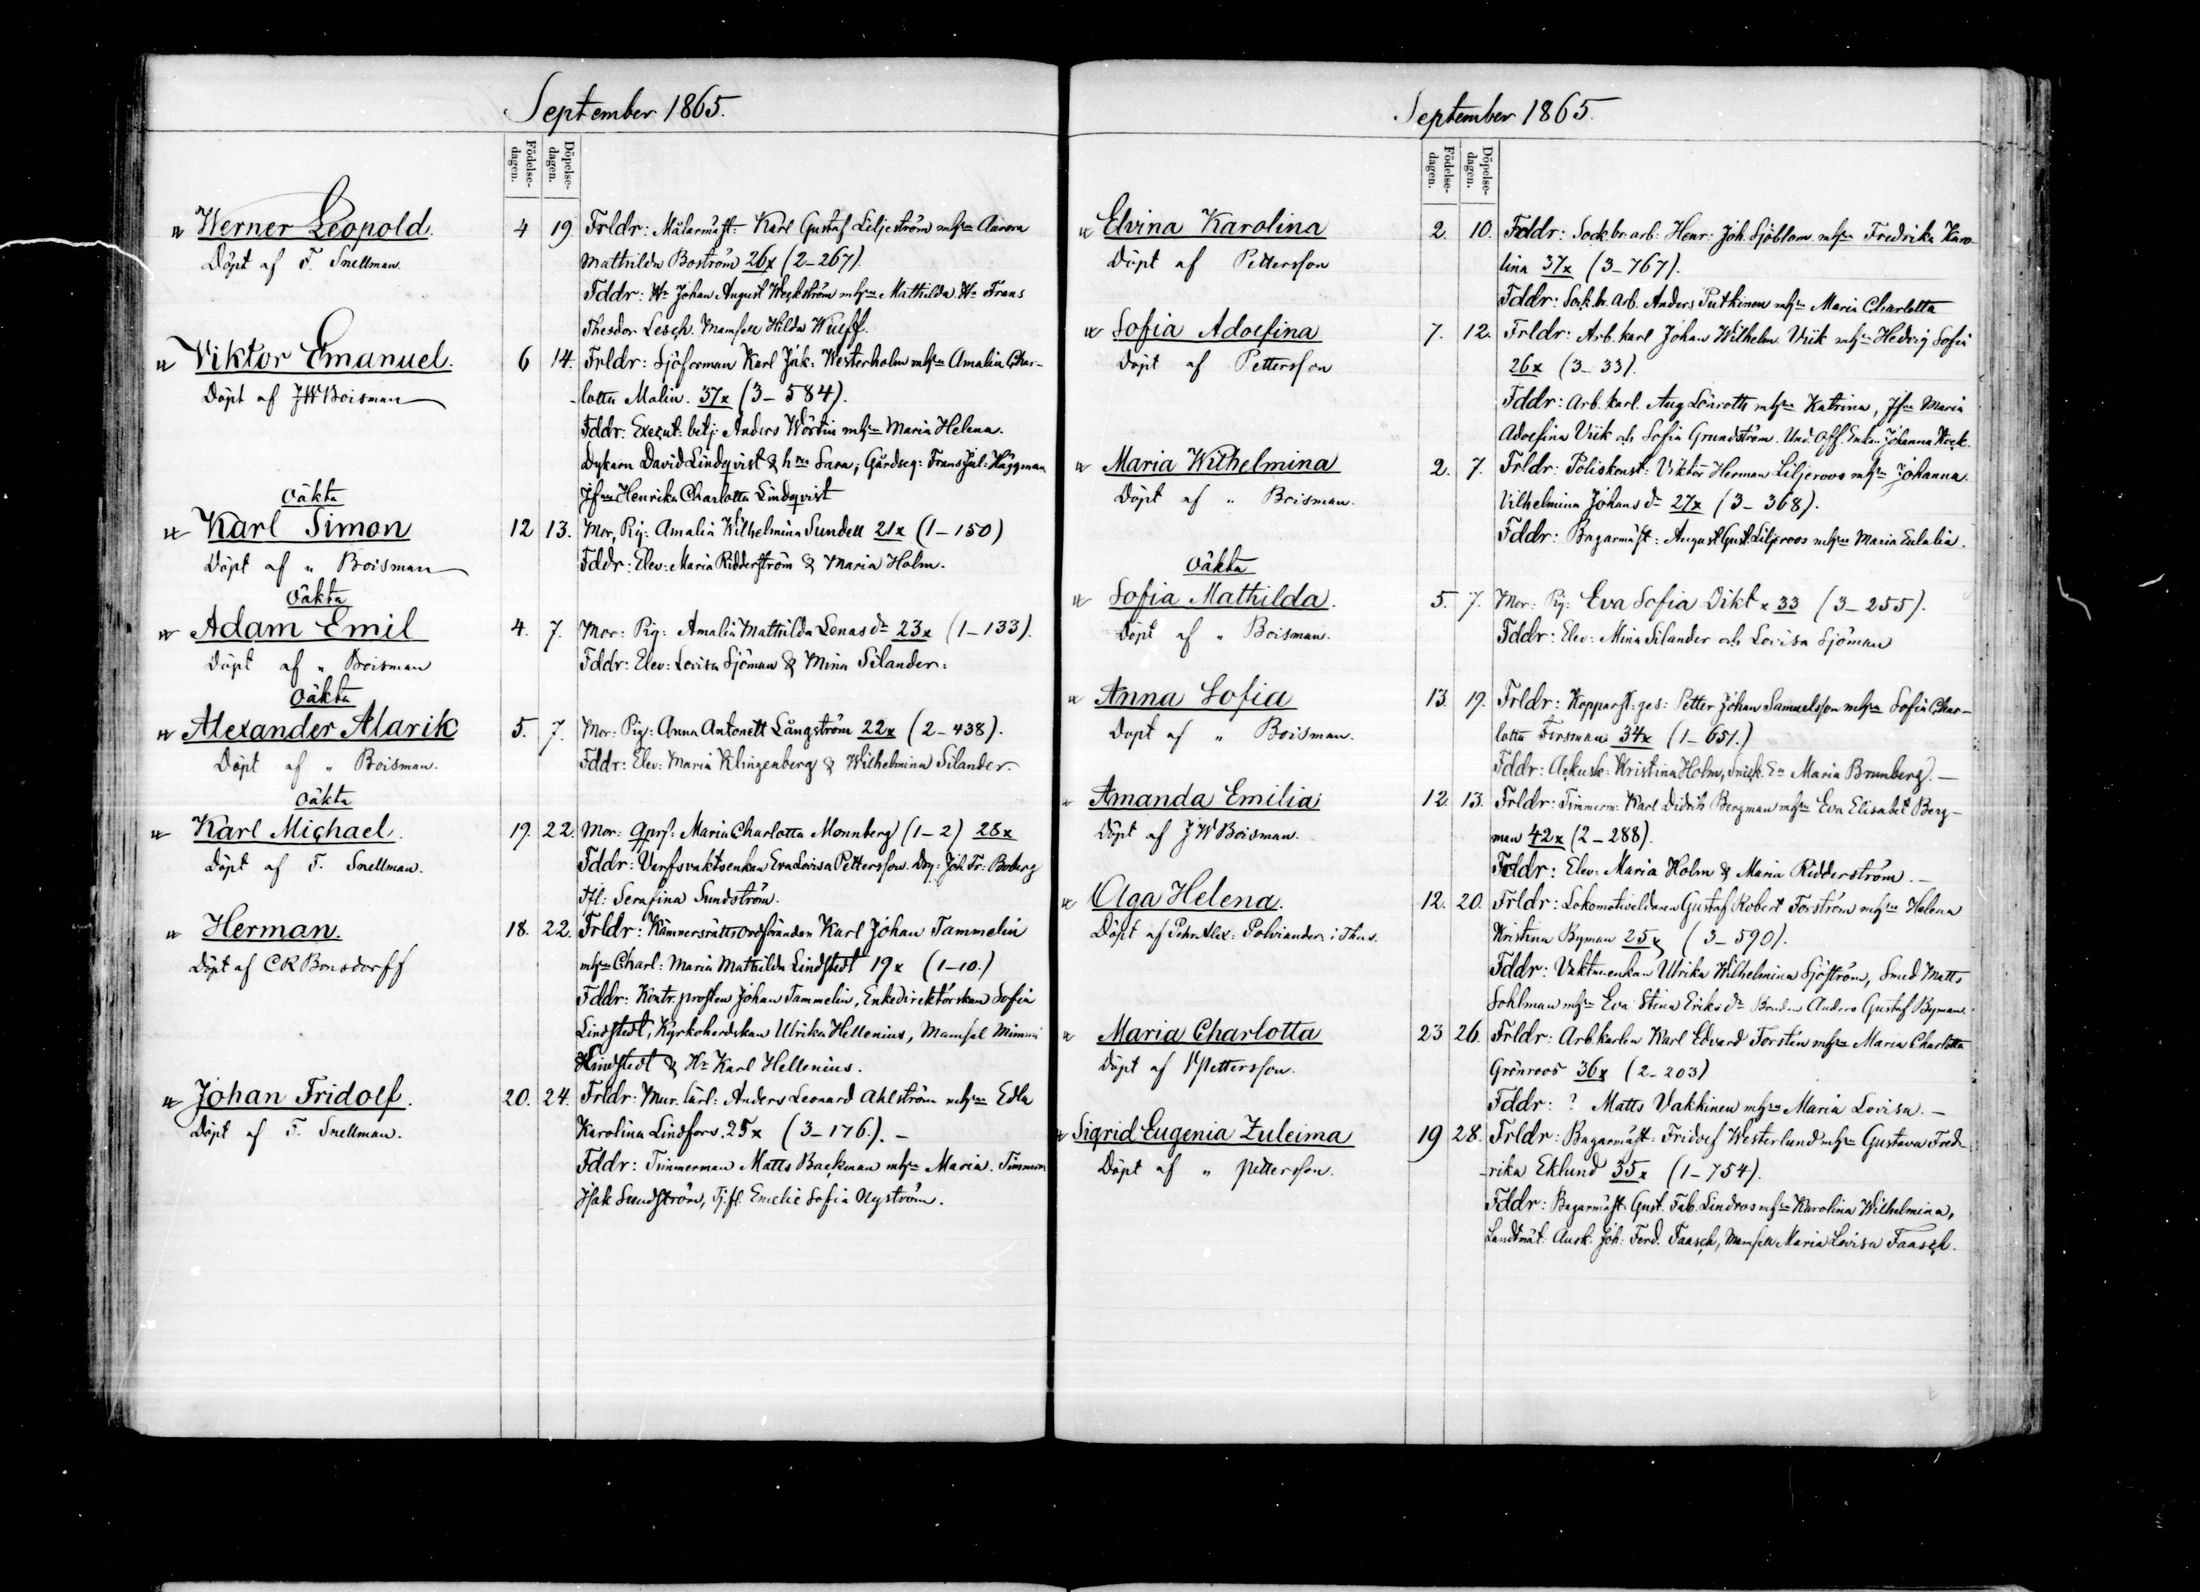 September 1865.
Födelse-dagen.
Döpelse-dagen.
Werner Leopold. 4 19 Frldr: Målarmäst: Karl Gustaf Liljeström mhu Aurora
Döpt af F. Snellman. Mathilda Boström 26x (2-267).
Fddr: Hr Johan August Weckström mhu Mathilda. Hr Frans
Theodor Lesch. Mamsell Hilda Wulff.
Viktor Emanuel. 6 14. Frldr: Sjöforman Karl Jak: Westerholm mhu Amalia Char-
Döpt af JW Boisman -lotta Malin. 37x (3-584).
Fddr: Execut: betj: Anders Wörtin mhu Maria Helena.
Dykarn David Lindqvist & hru Sara; Gårdseg: Frans Jul: Häggman
Jfru Henrika Charlotta Lindqvist
Oäkta
Karl Simon 12 13. Mor, Pig: Amalia Wilhelmina Sundell 21x (1-150)
Döpt af " Boisman Fddr: Elev: Maria Ridderström & Maria Holm.
Oäkta
Adam Emil 4. 7. Mor: Pig: Amalia Mathilda Lenasdr 23x (1-133).
Döpt af " Boisman Fddr: Elev: Lovisa Sjöman & Mina Silander.
Oäkta
Alexander Alarik 5. 7. Mor: Pig: Anna Antonett Långström 22x (2-438).
Döpt af " Boisman. Fddr: Elev: Maria Klingenberg & Wilhelmina Silander.
Oäkta
Karl Michael. 19. 22. Mor: Maria Charlotta Monnberg (1-2) 28x
Döpt af F. Snellman. Fddr: Varfsvaktsenkan Eva Lovisa Pettersson. Drg: Joh Fr: Boberg
Serafina Sundström.
Herman. 18. 22. Frldr: Kämnersrättsordföranden Karl Johan Tammelin
Döpt af CR Bonsdorff mhu Charl: Maria Mathilda Lindstedt 19x (1-10.)
Fddr: Kontr. prosten Johan Tammelin, Enkedirektörskan Sofia
Lindstedt, Kyrkoherdskan Ulrika Hellenius, Mamsel Mimmi
Lindstedt & Hr Karl Hellenius.
Johan Fridolf. 20. 24. Frldr: Mur. lärl: Anders Leonard Ahlström mhu Edla
Döpt af F. Snellman. Karolina Lindfors. 25x (3-176). -
Fddr: Timmerman Matts Backman mhu Maria. Timmerm
Isak Sundström, Tj. fl. Emelie Sofia Nyström.
September 1865.
Födelse-dagen.
Döpelse-dagen.
Elvina Karolina 2. 10. Fddr: Sock. br. arb: Henr: Joh. Sjöblom mhu Fredrika Karo-
Döpt af Pettersson lina 37x (3-767).
Fddr: Sock. br. arb. Anders Putkinen mhu Maria Charlotta
Sofia Adolfina 7. 12. Frldr: Arb. karl Johan Wilhelm Wiik mhu Hedvig Sofia
Döpt af Pettersson 26x (3-33).
Fddr: Arb. karl. Aug Lönroth mhu Katrina, Jfru Maria
Adolfina Wiik och Sofia Grundström. Und. Off. Enkan Johanna Kock.
Maria Wilhelmina 2. 7. Frldr: Poliskonst: Viktor Herman Liljeroos mhu Johanna
Döpt af " Boisman. Vilhelmina Johansdr 27x (3-368).
Fddr: Bagarmäst: August Gust. Liljeroos mhu Maria Eulalia.
Oäkta
Sofia Mathilda. 5. 7. Mor: Pig: Eva Sofia Dikt x 33 (3-255).
Döpt af " Boisman. Fddr: Elev: Mina Silander och Lovisa Sjöman
Anna Sofia 13. 19. Frldr: Kopparsl: ges: Petter Johan Samuelsson mhu Sofia Char-
Döpt af " Boisman. lotta Forsman 34x (1-651.)
Fddr: Ackusk: Kristina Holm, Snick. En Maria Brunberg. -
Amanda Emilia 12. 13. Frldr: Timmerm: Karl Didrik Bergman mhu Eva Elisabet Berg-
Döpt af J W Boisman. man 42x (2-288).
Fddr: Elev: Maria Holm & Maria Ridderström. -
Olga Helena. 12. 20. Frldr: Lokomotiveldaren Gustaf Robert Forström mhu Helena
Döpt af Pehr Alex: Polviander i Thus. Kristina Byman 25x (3-590).
Fddr: Vaktm.enkan Ulrika Wilhelmina Sjöström, Smed Matts
Sohlman mhu Eva Stina Eriksdr Bonden Anders Gustaf Byman.
Maria Charlotta 23 26. Frldr: Arb. karlen Karl Edvard Forstén mhu Maria Charlotta
Döpt af Pettersson. Grönroos 36x (2-203)
Fddr: ? Matts Vakkinen mhu Maria Lovisa. -
Sigrid Eugenia Zuleima 19 28. Frldr: Bagarmäst: Fridolf Westerlund mhu Gustava Fred-
Döpt af " Pettersson. -rika Eklund 35x (1-754).
Fddr: Bagarmäst: Gust. Fab. Lindros mhu Karolina Wilhelmina,
Landtmät. Ausk. Joh: Ferd. Taasch, Mamsell Maria Lovisa Taasch.